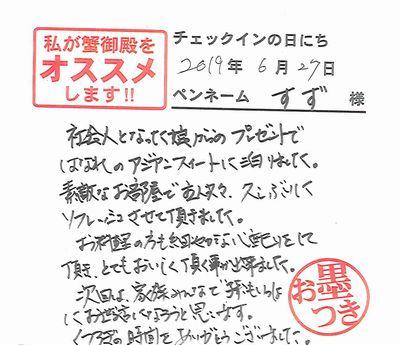 私が蟹御殿を
オススメ
します!!
チェックインの日にち
2019年 6月 27日
ペンネーム すず 様
社会人となった娘からのプレゼントで
はなれのアジアンスイートに泊りました。
素敵なお部屋で 久しぶりに
リフレッシュさせて頂きました。
お料理の方も細やかな心配りをして
頂き、とてもおいしく頂く事が出来ました。
次回は、家族みんなで 孫もいっしょ
にお世話になろうと思います。
くつろぎの時間をありがとうございました。
お墨つき